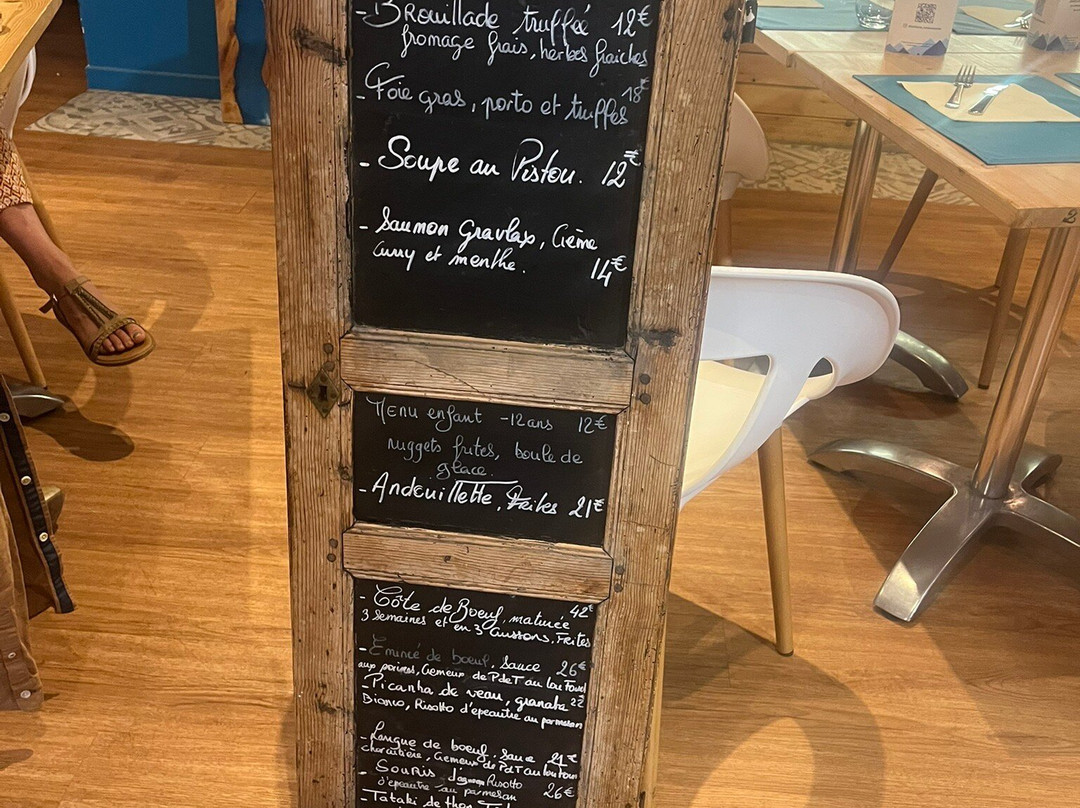 - Brouillade truffée 12€
fromage frais, herbes fraiches
- Foie gras, porto et truffes 18€
- Soupe au Pistou. 12€
- Saumon Gravlax, Crème
Curry et menthe. 14€
Menu enfant -12ans 12€
nuggets frites, boule de
glace.
- Andouillette, Frites 21€
- Côte de Boeuf, maturée 42€
3 Semaines et en 3 Cuissons, Frites
- Emincé de boeuf, Sauce 26€
aux poivres, Cremeux de PdeT au
- Picanha de veau, 22
Bianco, Risotto d'épeautre au parmesan
- Langue de boeuf, Sauce 21€
charcutière, Cremeux de PdeT au
- Souris d'agneau Risotto
d'épeautre au parmesan 26€
- Tataki de thon